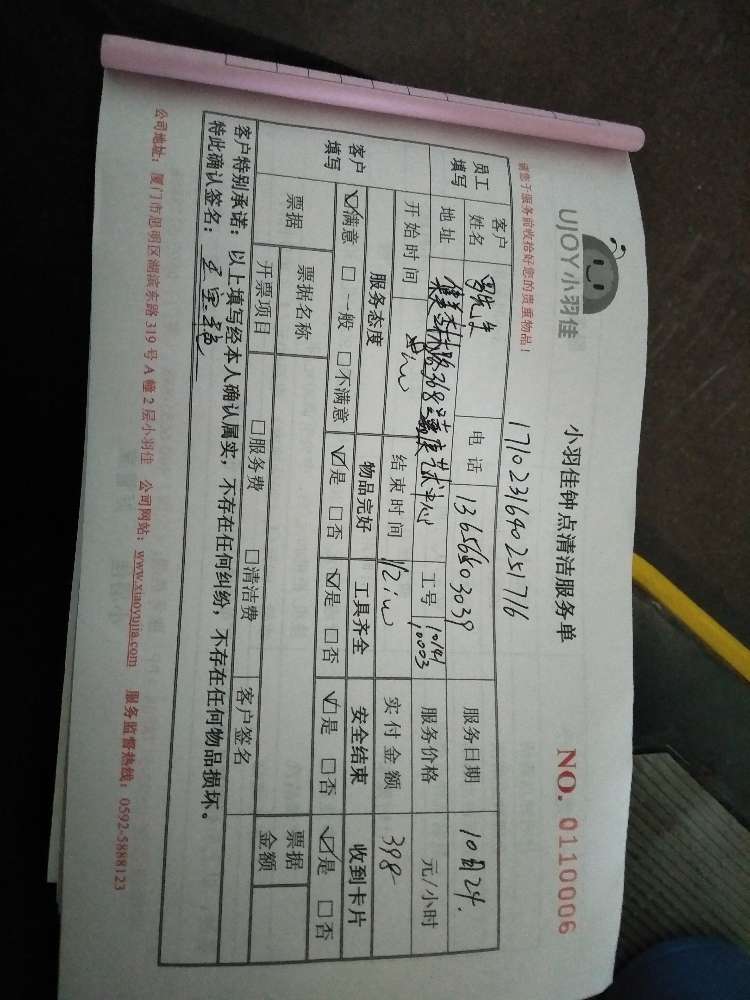 UJOY小羽佳
小羽佳钟点清洁服务单
NO. 0110006
请您于服务前收拾好您的贵重物品!
1710231640251716
员工填写
客户姓名
电话 13656503039
服务日期 10月24.
地址 集美杏林路368
艺术中心
工号 10141 10003
服务价格 元/小时
开始时间
结束时间
实付金额 398
客户填写
服务态度 物品完好 工具齐全 安全结束 收到卡片
☑满意 □一般 □不满意 ☑是 □否 ☑是 □否 ☑是 □否 ☑是 □否
票据
票据名称
票据金额
开票项目 □服务费 □清洁费
客户签名
客户特别承诺:以上填写经本人确认属实,不存在任何纠纷,不存在任何物品损坏。
特此确认签名:
公司地址:厦门市思明区湖滨东路319号A幢2层小羽佳 公司网站:www.xiaoyujia.com 服务监督热线:0592-5888123